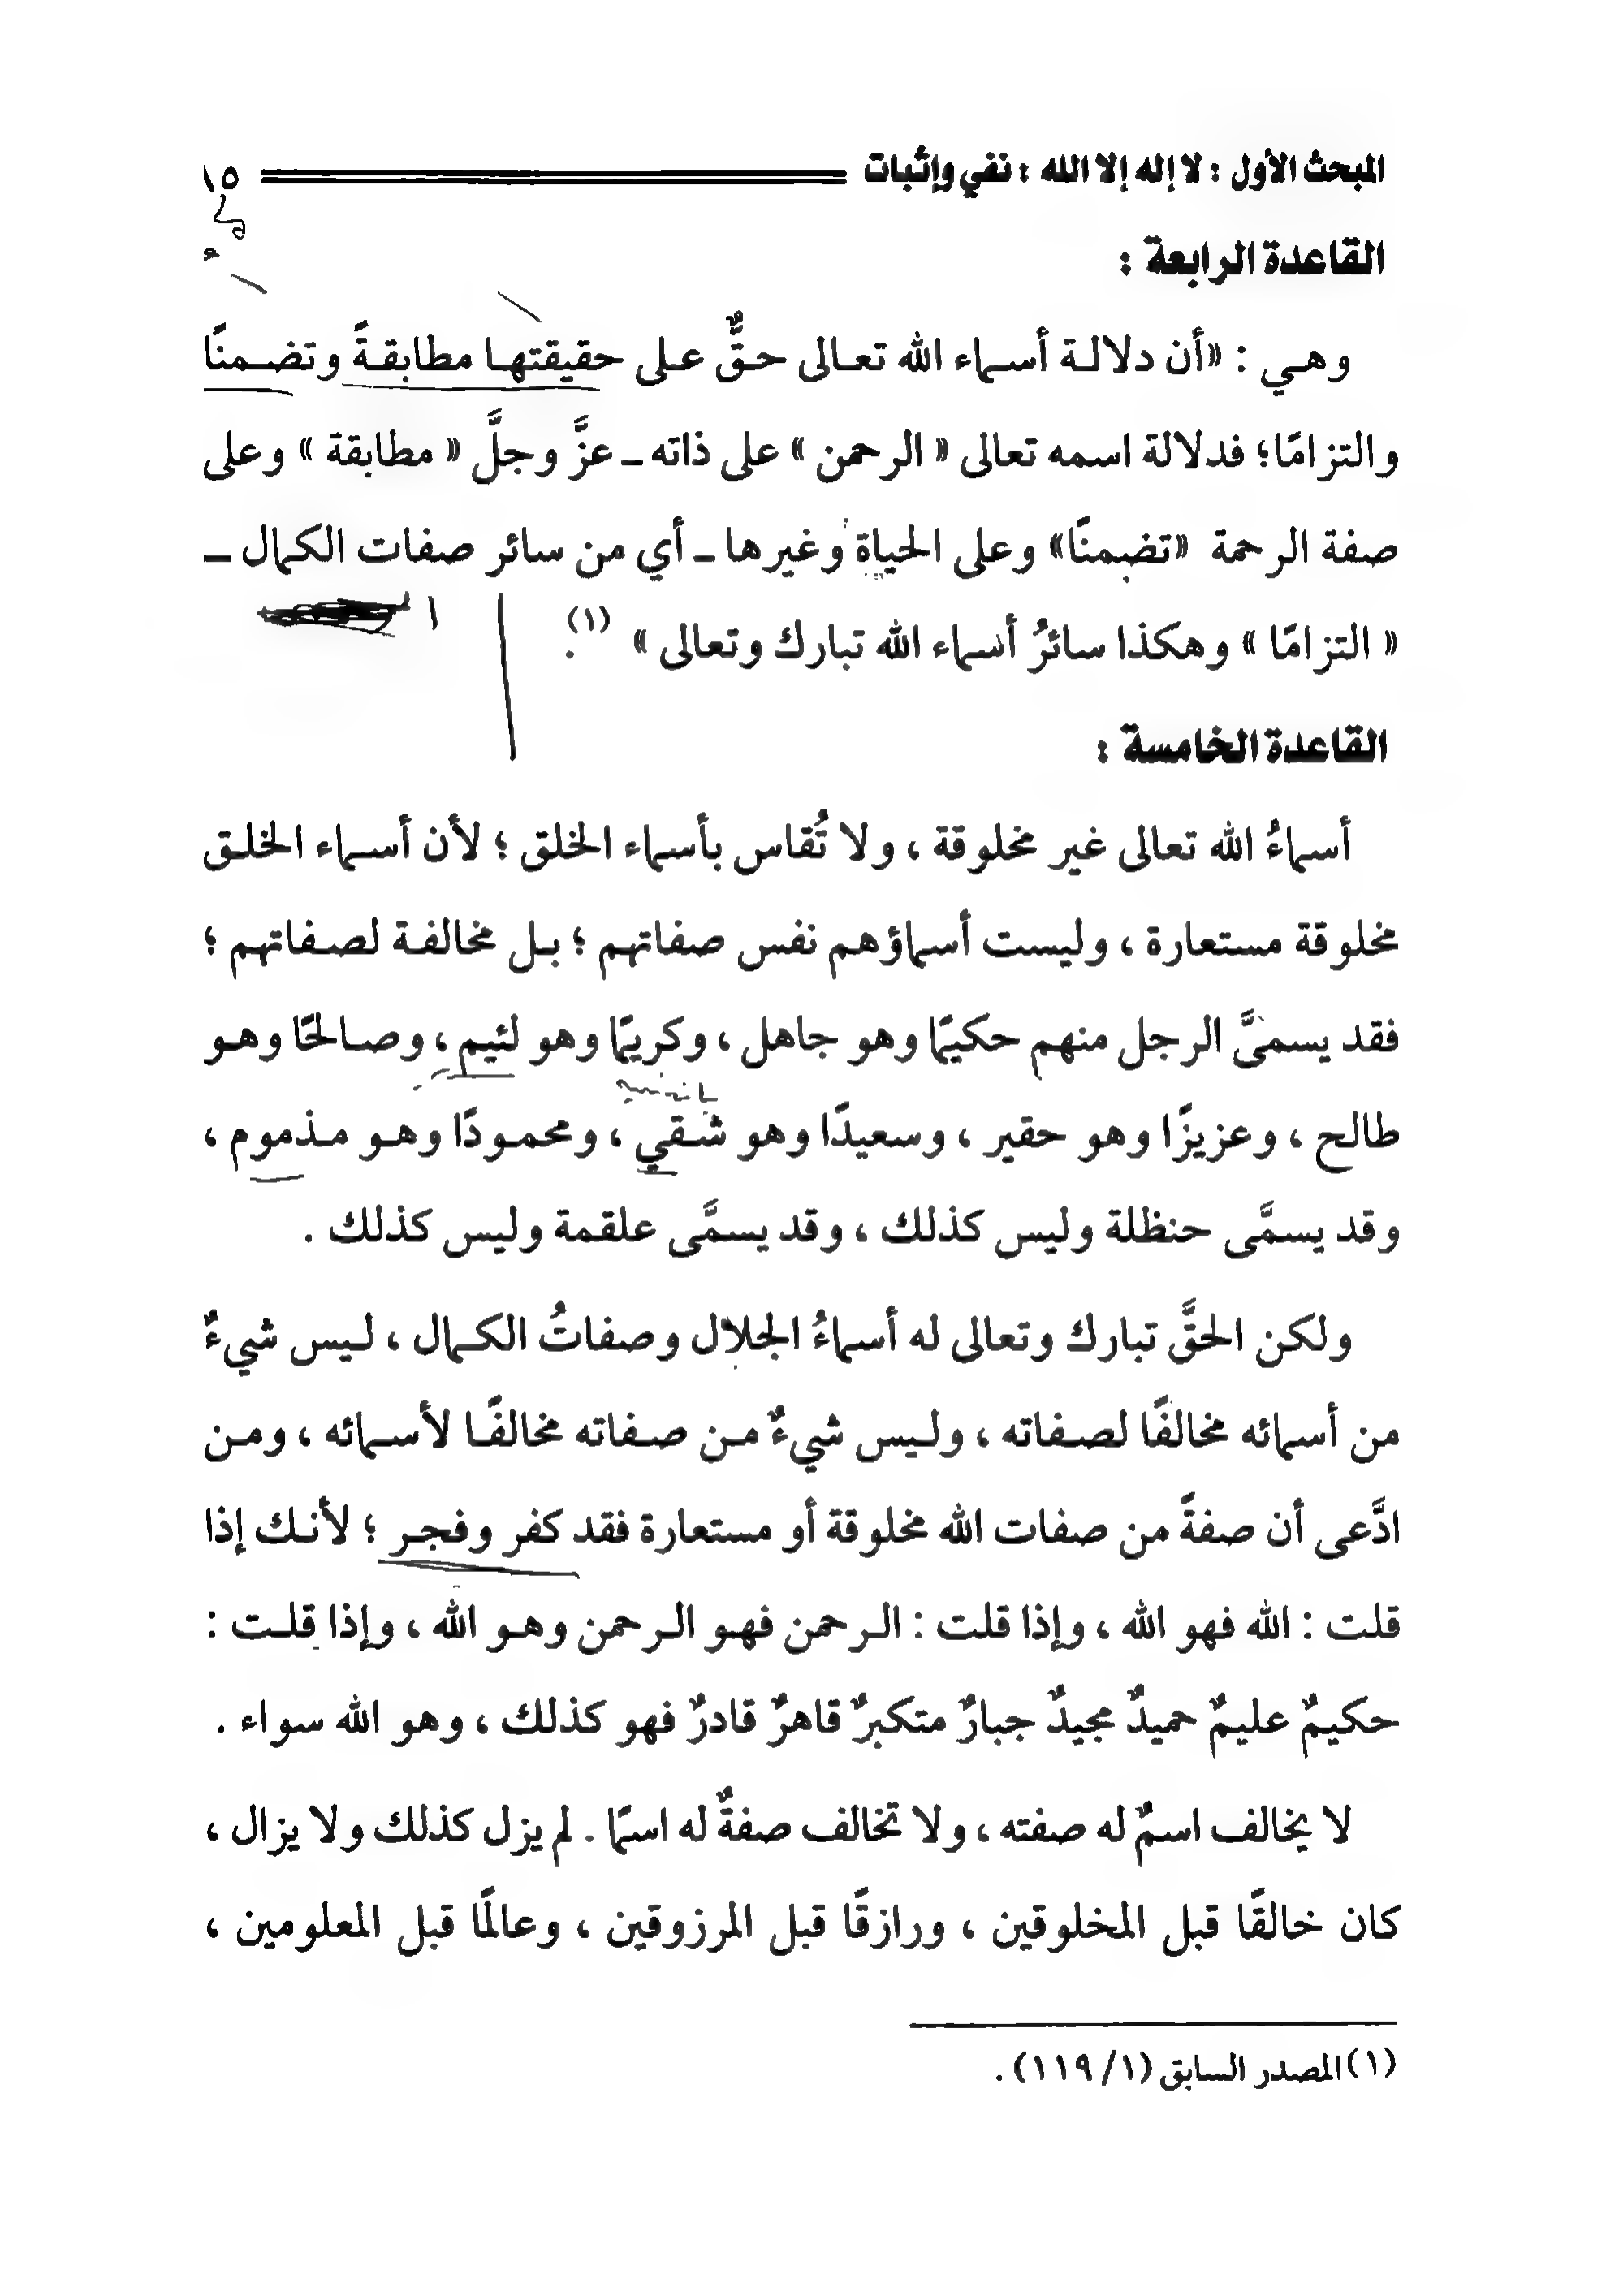 المبحث الأول : لا إله إلا الله : نفي وإثبات ١٥
القاعدة الرابعة :
وهي : «أن دلالة أسماء الله تعالى حقٌّ على حقيقتها مطابقةً وتضمنًا
والتزامًا؛ فدلالة اسمه تعالى « الرحمن » على ذاته ـ عزَّ وجلَّ « مطابقة » وعلى
صفة الرحمة «تضمنًا» وعلى الحياة وغيرها ـ أي من سائر صفات الكمال ـ
« التزامًا » وهكذا سائرُ أسماء الله تبارك وتعالى » (١) .
القاعدة الخامسة :
أسماءُ الله تعالى غير مخلوقة ، ولا تُقاس بأسماء الخلق ؛ لأن أسماء الخلق
مخلوقة مستعارة ، وليست أسماؤهم نفس صفاتهم ؛ بل مخالفة لصفاتهم ؛
فقد يسمىَّ الرجل منهم حكيمًا وهو جاهل ، وكريمًا وهو لئيم ، وصالحًا وهو
طالح ، وعزيزًا وهو حقير ، وسعيدًا وهو شقي ، ومحمودًا وهو مذموم ،
وقد يسمَّى حنظلة وليس كذلك ، وقد يسمَّى علقمة وليس كذلك .
ولكن الحقَّ تبارك وتعالى له أسماءُ الجلال وصفاتُ الكمال ، ليس شيءٌ
من أسمائه مخالفًا لصفاته ، وليس شيءٌ من صفاته مخالفًا لأسمائه ، ومن
ادَّعى أن صفةً من صفات الله مخلوقة أو مستعارة فقد كفر وفجر ؛ لأنك إذا
قلت : الله فهو الله ، وإذا قلت : الرحمن فهو الرحمن وهو الله ، وإذا قلت :
حكيمٌ عليمٌ حميدٌ مجيدٌ جبارٌ متكبرٌ قاهرٌ قادرٌ فهو كذلك ، وهو الله سواء .
لا يخالف اسمٌ له صفته ، ولا تخالف صفةٌ له اسمًا . لم يزل كذلك ولا يزال ،
كان خالقًا قبل المخلوقين ، ورازقًا قبل المرزوقين ، وعالمًا قبل المعلومين ،
(١) المصدر السابق (١/ ١١٩) .